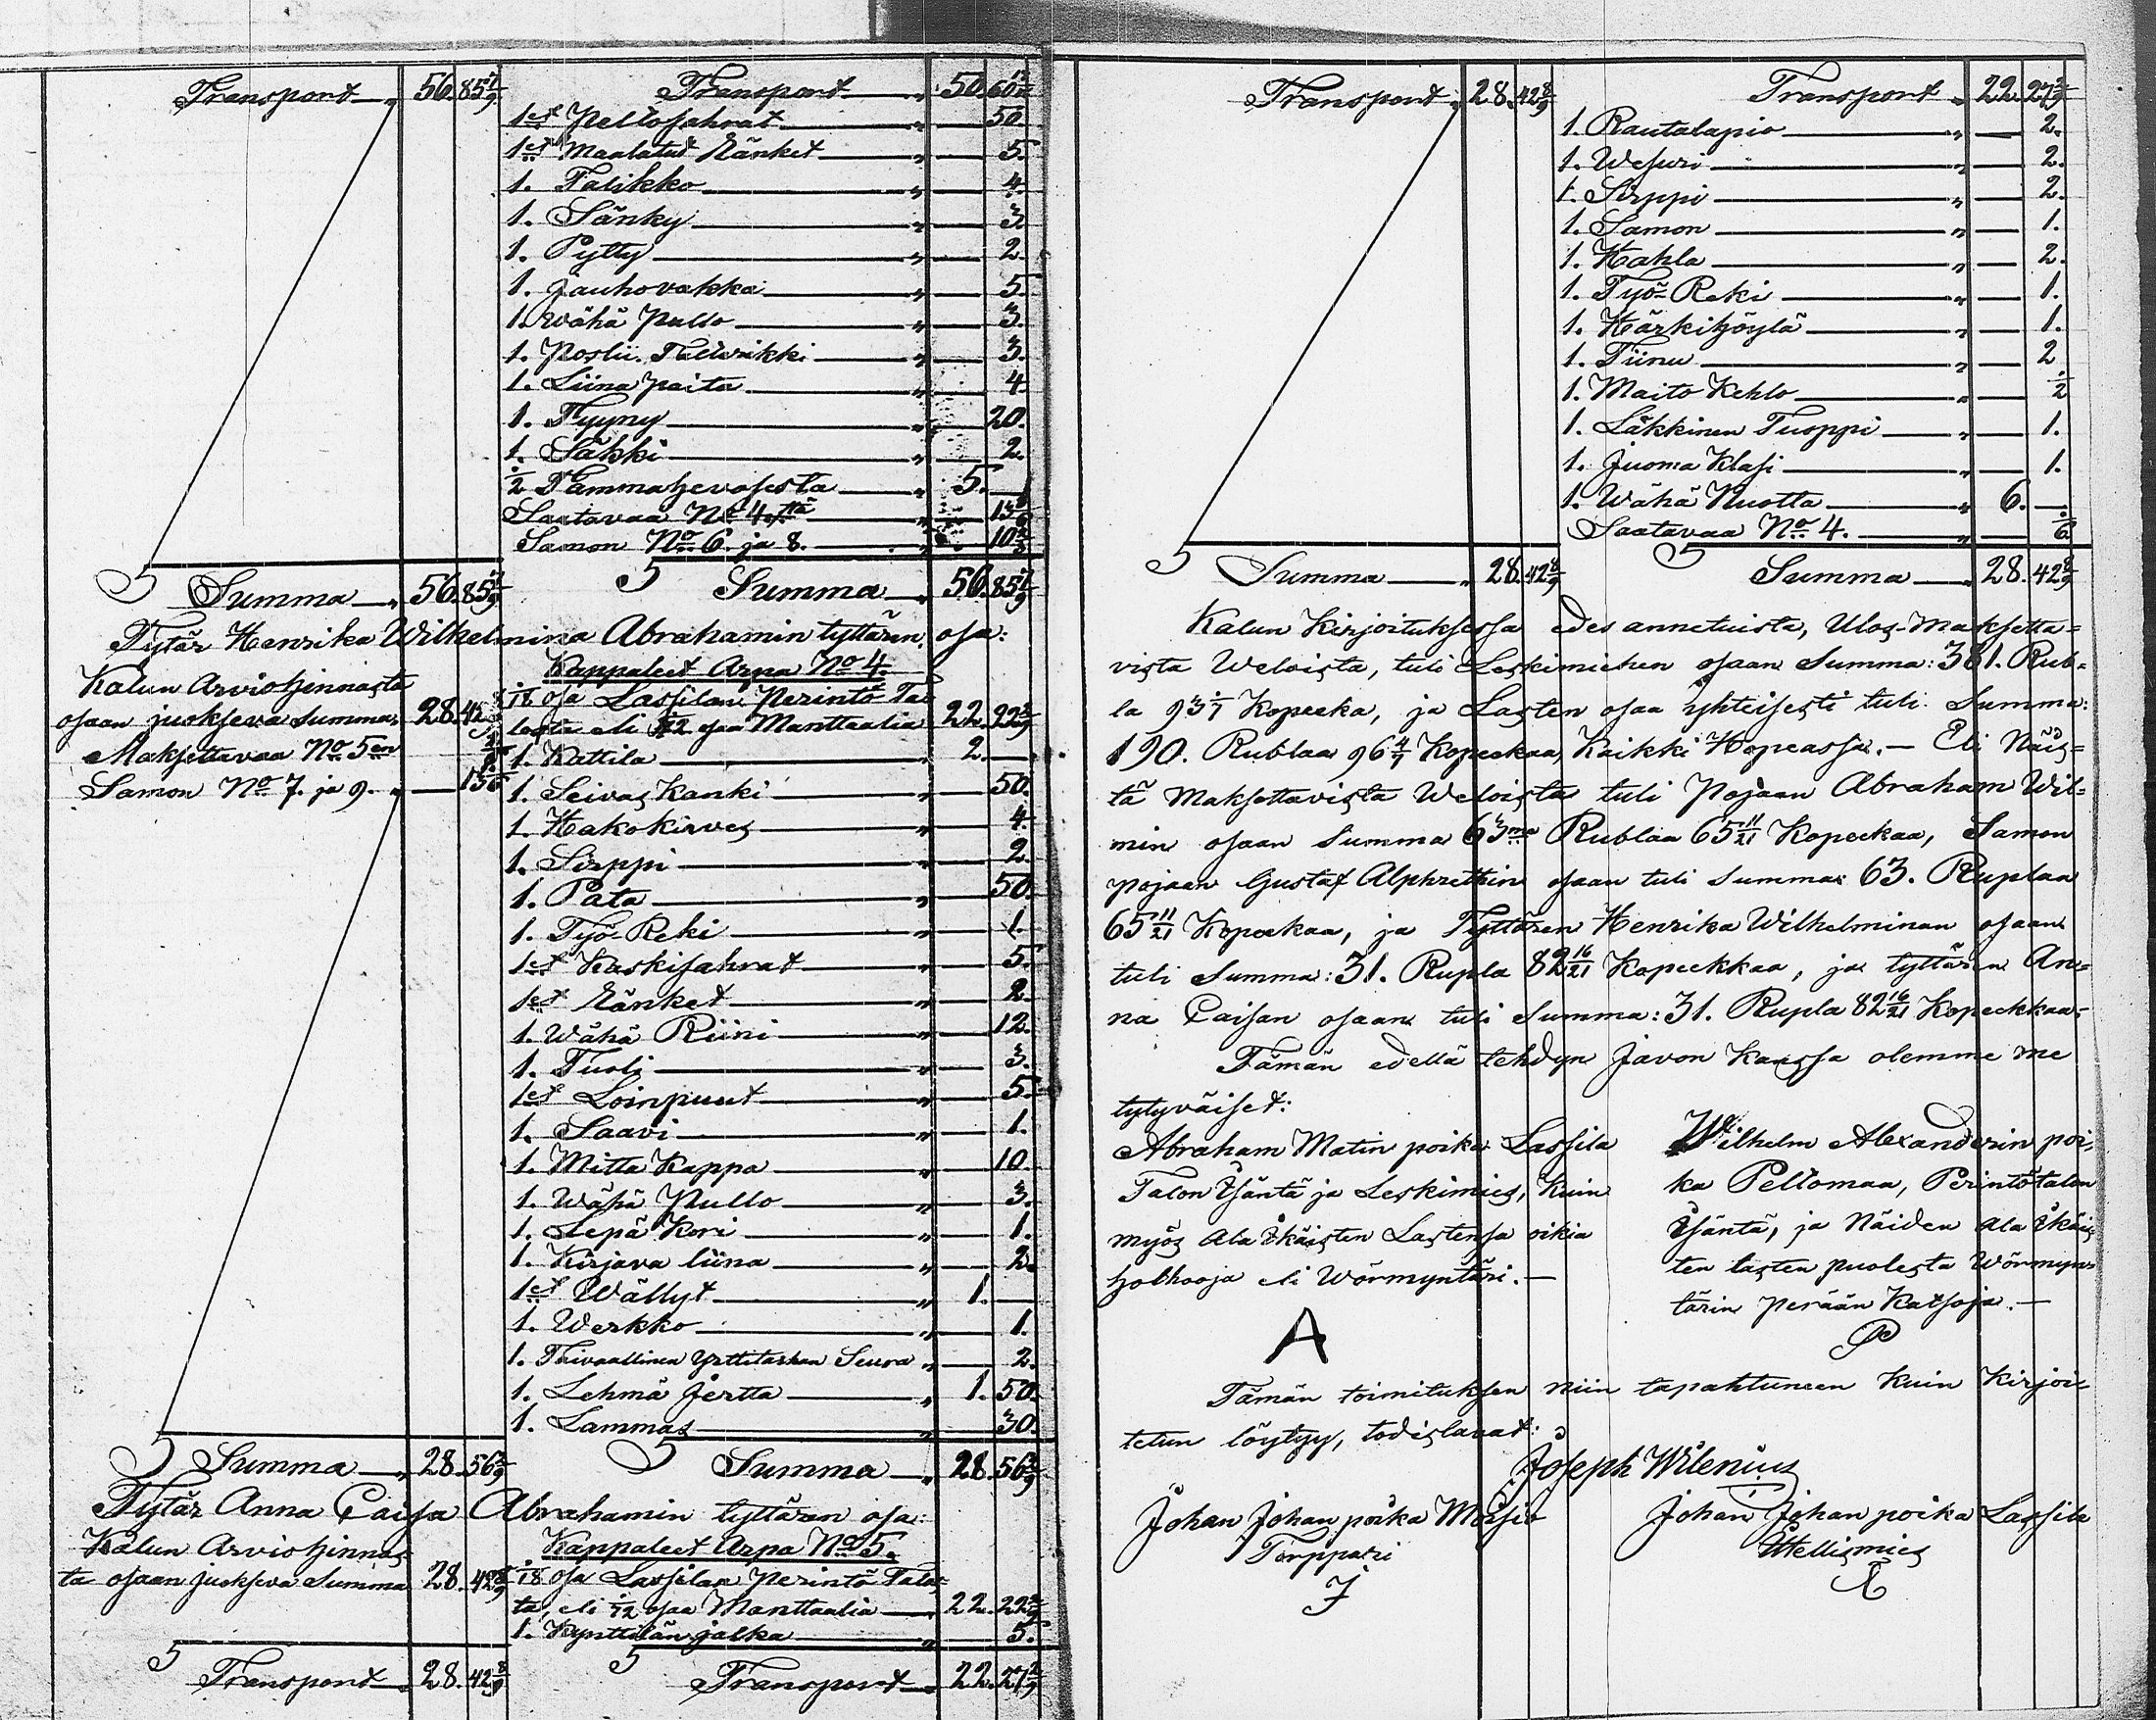 Transport 56. 85 7/9
Transport 50. 60
1et Peltosahrat 50.
1et Maalatut Länket 5.
1. Talikko 4.
1. Sänky 3.
1. Pytty 2.
1. Jauhovakka 5.
1. Wähä Pullo 3.
1. Poslii. 3.
1. Liina paita 4.
1. Tyyny 20.
1. Säkki 2.
1/2 Tammahevosesta 5.
Saatavaa No 4
Samon No 6. ja 8. 10
Summa 56. 85 7/9
Summa 56. 85 7/9
Tytär Henrika Wilhelmina Abrahamin tyttären osa:
Kalun Arviohinnasta
osaan juokseva summa, 28. 42 8/9
Maksettavaa No 5en
Samon No 7. ja 9. 13
Kappaleet Arpa No 4.
1/18 osa Lassilan Perintö Ta=
losta eli 1/12 osaa Manttaalia 22. 22 2/9
1. Kattila 2.
1. Seiväs Kanki 50.
1. Hakokirves 4.
1. Sirppi 2.
1. Pata 50.
1. Työ-Reki 1.
1et Kaskisahrat 5.
1et Länket 2.
1. Wähä Riini 12.
1. Tuoli 3.
1et Loinpuut 5.
1. Saavi 1.
1. Mitta Kappa 10.
1. Wähä Pullo 3.
1. Lepä Kori 1.
1. Kirjava liina 2.
1et Wällyt 1.
1. Werkko 1.
1. Taivaallinen Yrttitarhan Seura 2.
1. Lehmä Jertta 1. 50.
1. Lammas 30.
Summa 28. 56 2/9
Summa 28. 56 2/9
Tytär Anna Caisa Abrahamin tyttären osa:
Kalun Arviohinnas=
ta osaan juokseva Summa 28. 42 8/9
Kappaleet Arpa No 5.
1/18 osa Lassilan Perintö Talos=
ta, eli 1/12 osaa Manttaalia 22. 22 2/9
1. Kynttilän jalka 5.
Transport 28. 42 8/9
Transport 22. 27 2/9
Transport 28. 42 8/9
Transport 22. 27 2/9
1. Rautalapio 2.
1. Wesuri 2.
1. Sirppi 2.
1. Samon 1.
1. Kahla 2.
1. Työ-Reki 1.
1. Härkihöylä 1.
1. Tiinu 2
1. Maito Kehlo 1/2
1. Läkkinen Tuoppi 1.
1. Juoma Klasi 1.
1. Wähä Nuotta 6.
Saatavaa No 4. 1/6
Summa 28. 42 8/9
Summa 28. 42 8/9
Kalun Kirjoituksessa edes annetuista, Ulos-Maksetta=
vista Weloista, tuli Leskimiehen osaan Summa: 381. Rub=
la 93 1/7 Kopeeka, ja Lasten osaa yhteisesti tuli Summa:
190. Rublaa 96 4/7 Kopeekaa, Kaikki Hopeassa. — Eli Näis=
tä Maksettavista Weloista tuli Pojaan Abraham Wil=
min osaan Summa 63me Rublaa 65 11/21 Kopeekaa, Samon
pojaan Gustaf Alphrethin osaan tuli Summa: 63. Ruplaa
65 11/21 Kopeekaa, ja Tyttären Henrika Wilhelminan osaan
tuli Summa: 31. Rupla 82 16/21 Kopeekkaa, ja tyttären An=
na Caisan osaan tuli Summa: 31. Rupla 82 16/21 Kopeekkaa.
Tämän edellä tehdyn Javon Kanssa olemme me
tytyväiset:
Abraham Matin poika Lassila
Talon Isäntä ja Leskimies, kuin
myös ala Ikäisten Lastensa oikia
holhooja eli Wörmyntäri. —
A
Wilhelm Alexanderin poi=
ka Peltomaa, Perintötalon
Isäntä, ja Näiden ala Ikäis=
ten lasten puolesta Wörmyn=
tärin perään Katsoja. —
P
Tämän toimituksen niin tapahtuneen kuin Kirjoi=
tetun löytyy, todistavat:
Joseph Wilenius
Johan Johan poika Moisio
Torppari
J
Johan Johan poika Lassila
Itellismies
E